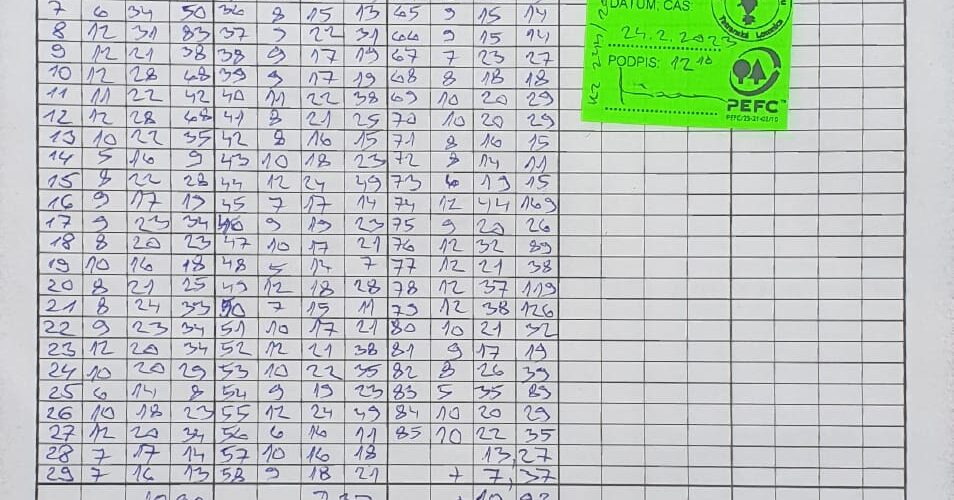 7 6 34 50 36 8 15 13 65 9 15 14
8 12 31 83 37 9 22 31 66 9 15 14
9 12 21 38 38 9 17 19 67 7 23 27
10 12 28 68 39 9 17 19 68 8 18 18
11 11 22 42 40 11 22 38 69 10 20 29
12 12 28 68 41 8 21 25 70 10 20 29
13 10 22 35 42 8 16 15 71 8 16 15
14 5 16 9 43 10 18 23 72 8 14 11
15 8 22 28 44 12 24 49 73 6 19 15
16 9 17 19 45 7 17 14 74 12 44 169
17 9 23 34 46 9 19 23 75 9 20 26
18 8 20 23 47 10 17 21 76 12 32 89
19 10 16 18 48 5 14 7 77 12 21 38
20 8 21 25 49 12 18 28 78 12 37 119
21 8 24 33 50 7 15 11 79 12 38 126
22 9 23 34 51 10 17 21 80 10 21 32
23 12 20 34 52 12 21 38 81 9 17 19
24 10 20 29 53 10 22 35 82 8 26 39
25 6 14 8 54 9 19 23 83 5 35 89
26 10 18 23 55 12 24 49 84 10 20 29
27 12 20 34 56 6 16 11 85 10 22 35
28 7 17 14 57 10 16 18 13,27
29 7 16 13 58 9 18 21 + 7,37
DATUM, ČAS:
24.2.2023
PODPIS: 12 10
PEFC™
PEFC/23-21-02/10
Tatranská Lomnica